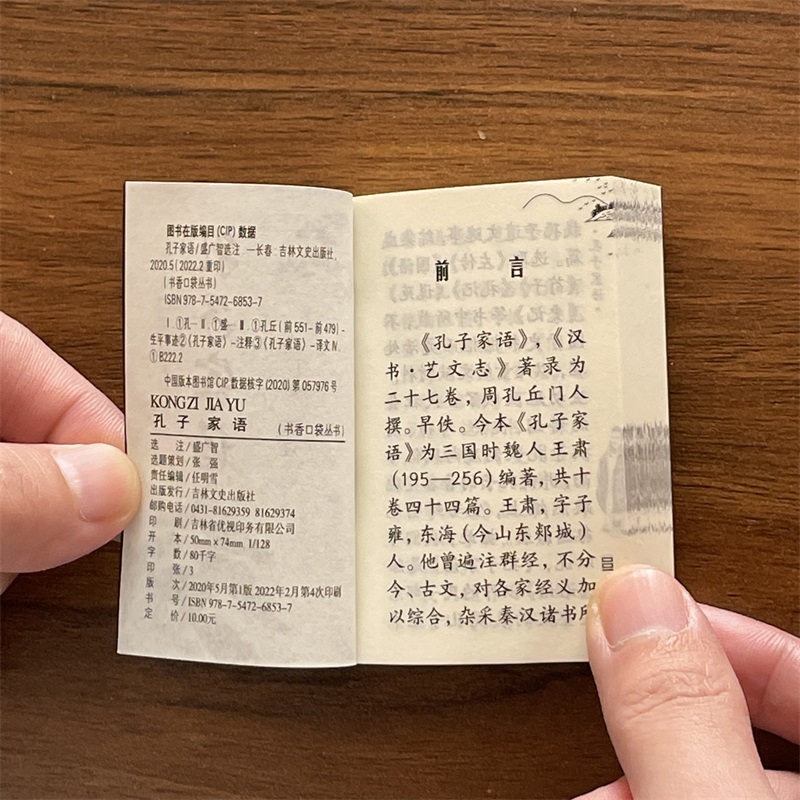 图书在版编目(CIP)数据
孔子家语/盛广智选注.—长春:吉林文史出版社,
2020.5(2022.2重印)
(书香口袋丛书)
ISBN 978-7-5472-6853-7
Ⅰ.①孔… Ⅱ.①盛… Ⅲ.①孔丘(前551-前479)-
生平事迹②《孔子家语》-注释③《孔子家语》-译文Ⅳ.
①B222.2
中国版本图书馆CIP数据核字(2020)第057976号
KONGZI JIA YU
孔子家语 (书香口袋丛书)
选注/盛广智
选题策划/张强
责任编辑/任明雪
出版发行/吉林文史出版社
邮购电话/0431-81629359 81629374
印刷/吉林省优视印务有限公司
开本/50mm×74mm 1/128
字数/80千字
印张/3
版次/2020年5月第1版 2022年2月第4次印刷
书号/ISBN 978-7-5472-6853-7
定价/10.00元
前言
《孔子家语》,《汉
书·艺文志》著录为
二十七卷,周孔丘门人
撰。早佚。今本《孔子家
语》为三国时魏人王肃
(195—256)编著,共十
卷四十四篇。王肃,字子
雍,东海(今山东郯城)
人。他曾遍注群经,不分
今、古文,对各家经义加
以综合,杂采秦汉诸书所